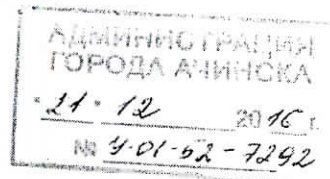 АДМИНИСТРАЦИЯ
ГОРОДА АЧИНСКА
"21" 12 2016 г.
№ У-01-52-7292